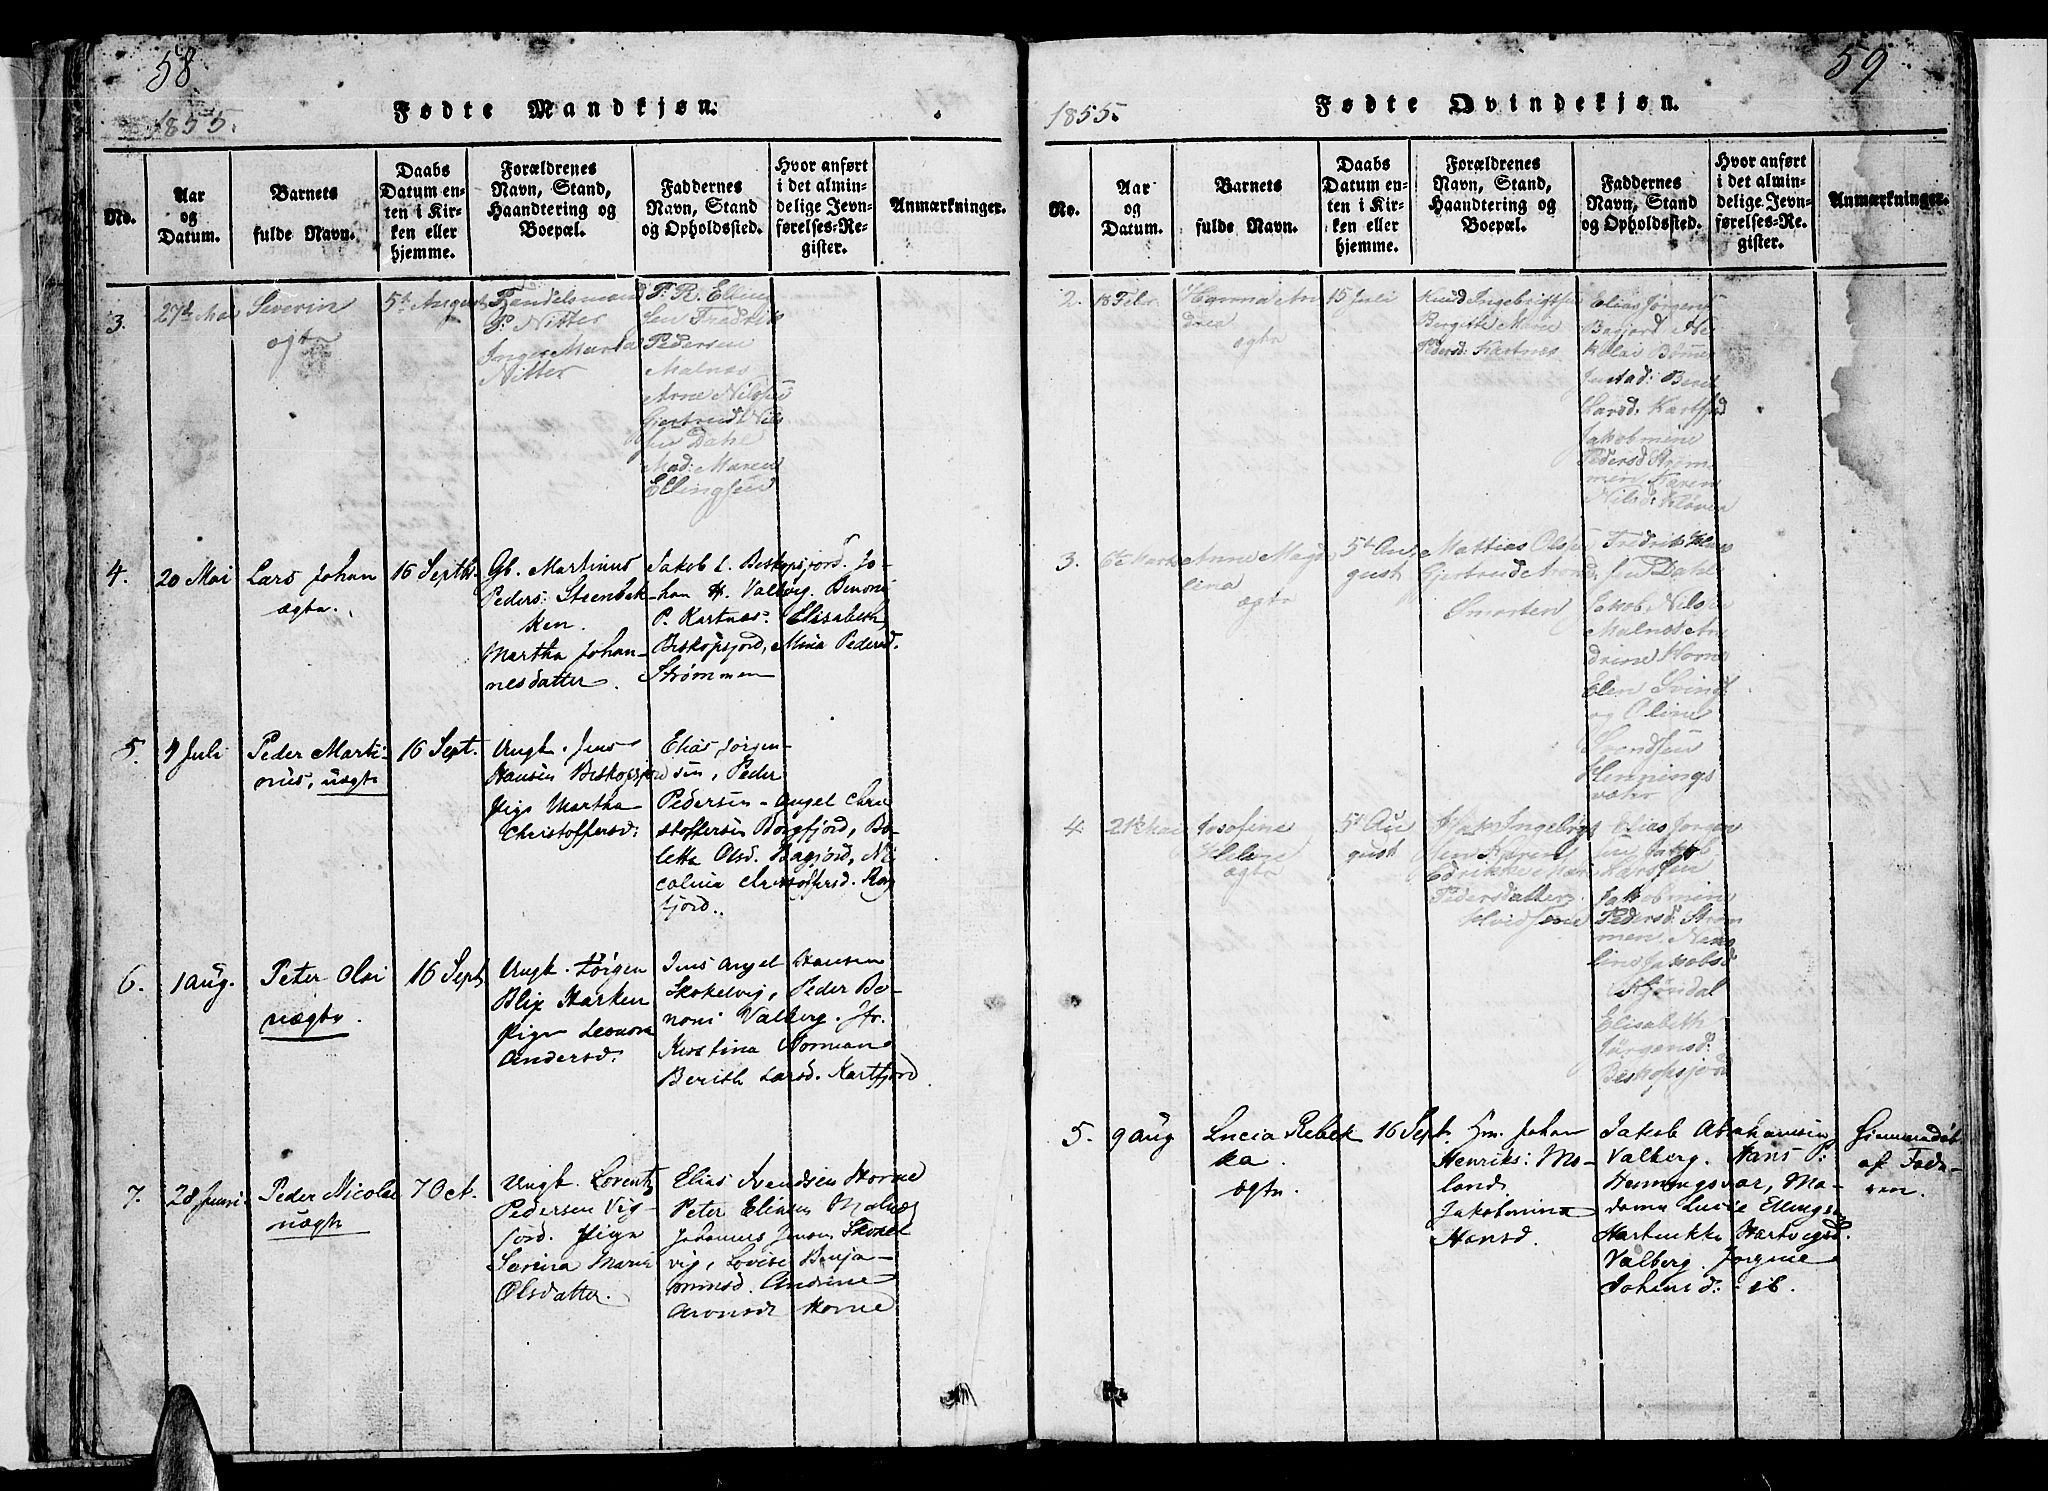 58
1855.
Fødte Mandkjøn.
No.
Aar
og
Datum.
Barnets
fulde Navn.
Daabs
Datum en-
ten i Kir-
ken eller
hjemme.
Forældrenes
Navn, Stand,
Haandtering og
Boepæl.
Faddernes
Navn, Stand
og Opholdssted.
Hvor anført
i det almin-
delige Jevn-
førelses-Re-
gister.
Anmærkninger.
3.
27d Mai
Severin
ægte
5te August
Handelsmand
P. Nitter
Inger Maria
Nitter
P. R. Elling
sen Fredrik
Pedersen
Malnæs
Arne Nilsen
Gjertrud Nils
sen Dahl
Mad: Maren
Ellingsen
4.
20 Mai
Lars Johan
ægte.
16 Septb.
Gb. Martinus
Peders: Steenbak
ken.
Martha Johan-
nesdatter.
Jakob L. Biskopsjord. Jo-
han H. Valbvig. Benoni
P. Kartnæs: Elisabeth
Biskopsjord, Mina Pedersd.
Strømmen
5.
4 Juli
Peder Marti-
nus, uægte
16 Sept.
Ungk. Jens
Hansen Biskopsjord
Pige Martha
Christoffersd:
Elias Jørgen-
sen, Peder
Pedersen - Angel Chri
stoffersen Borgfjord, Bo-
letta Olsd. Bagjord, Ni
colina Christoffersd. Borg
fjord.
6.
1 Aug.
Peter Olai
uægte.
16 Sept
Ungk. Jörgen
Blix Harken
Pige Leonora
Andersd.
Jens Angel Hansen
Skokelvig, Peder Be-
noni Valberg. Jfr.
Kristina Norman
Berith Larsd. Kartfjord.
7.
28 Juni.
Peder Nicolai
uægte
7 Oct.
Ungk. Lorentz
Pedersen Vig-
fjord. Pige
Serina Marie
Olsdatter.
Elias Svendsen Horne
Peter Eliesen Malnæs
Johannes Jensen Skokel
vig, Lovise Benja-
minsd. Andrine
Aronsd Horne
59
1855.
Fødte Qvindekjøn.
No.
Aar
og
Datum.
Barnets
fulde Navn.
Daabs
Datum en-
ten i Kir-
ken eller
hjemme.
Forældrenes
Navn, Stand,
Haandtering og
Boepæl.
Faddernes
Navn, Stand
og Opholdssted.
Hvor anført
i det almin-
delige Jevn-
førelses-Re-
gister.
Anmærkninger.
2.
18 Febr.
Hanna An
drea
ægte
15 Juli
Knud Ingebrigtsen
Bergitte Marie
Pedersd: Kartnæs
Elias Jörgens
Bagjord
kolai
Berit
Larsd. Kartfjord
Jakobmine
Pedersd Strøm
men Karen
Nilsd: Kløven
3.
6te Marts
Anne Magda
lina
ægte
5te Au
gust
Mattias Olsen
Gjertrud Arond.
Smorten
Fredrik
sen Dahl
Jakob Nilsen
Malnæs An
drine Horne
Elen
og Oline
Svendsen
Hennings
vær
4.
21 Mai
Josefine
Helene
ægte
5te Au
gust
Isak Ingebrigt
sen Karen
Edrikke Mar
Pedersdatter
Hvidsene
Elias Jorgen
sen Jakob
Larssen
Jakobmine
Pedersd: Strøm
men
line Jakobsd
Störndal
Elisabeth
Jörgensd:
Biskopsjord
5.
9 Aug
Lucia Rebek
ka.
ægte.
16 Sept.
Hm. Johan
Henriks: Mo-
land.
Jakobmina
Hansd.
Jakob Abrahamsen
Valberg. Hans P:
Henningsvær, Ma-
dame Lucie Ellings
Hartvikke Hartvigsd.
Valberg. Jorgine
Johansd: ib.
Hjemmedöbt
af Fade-
ren.